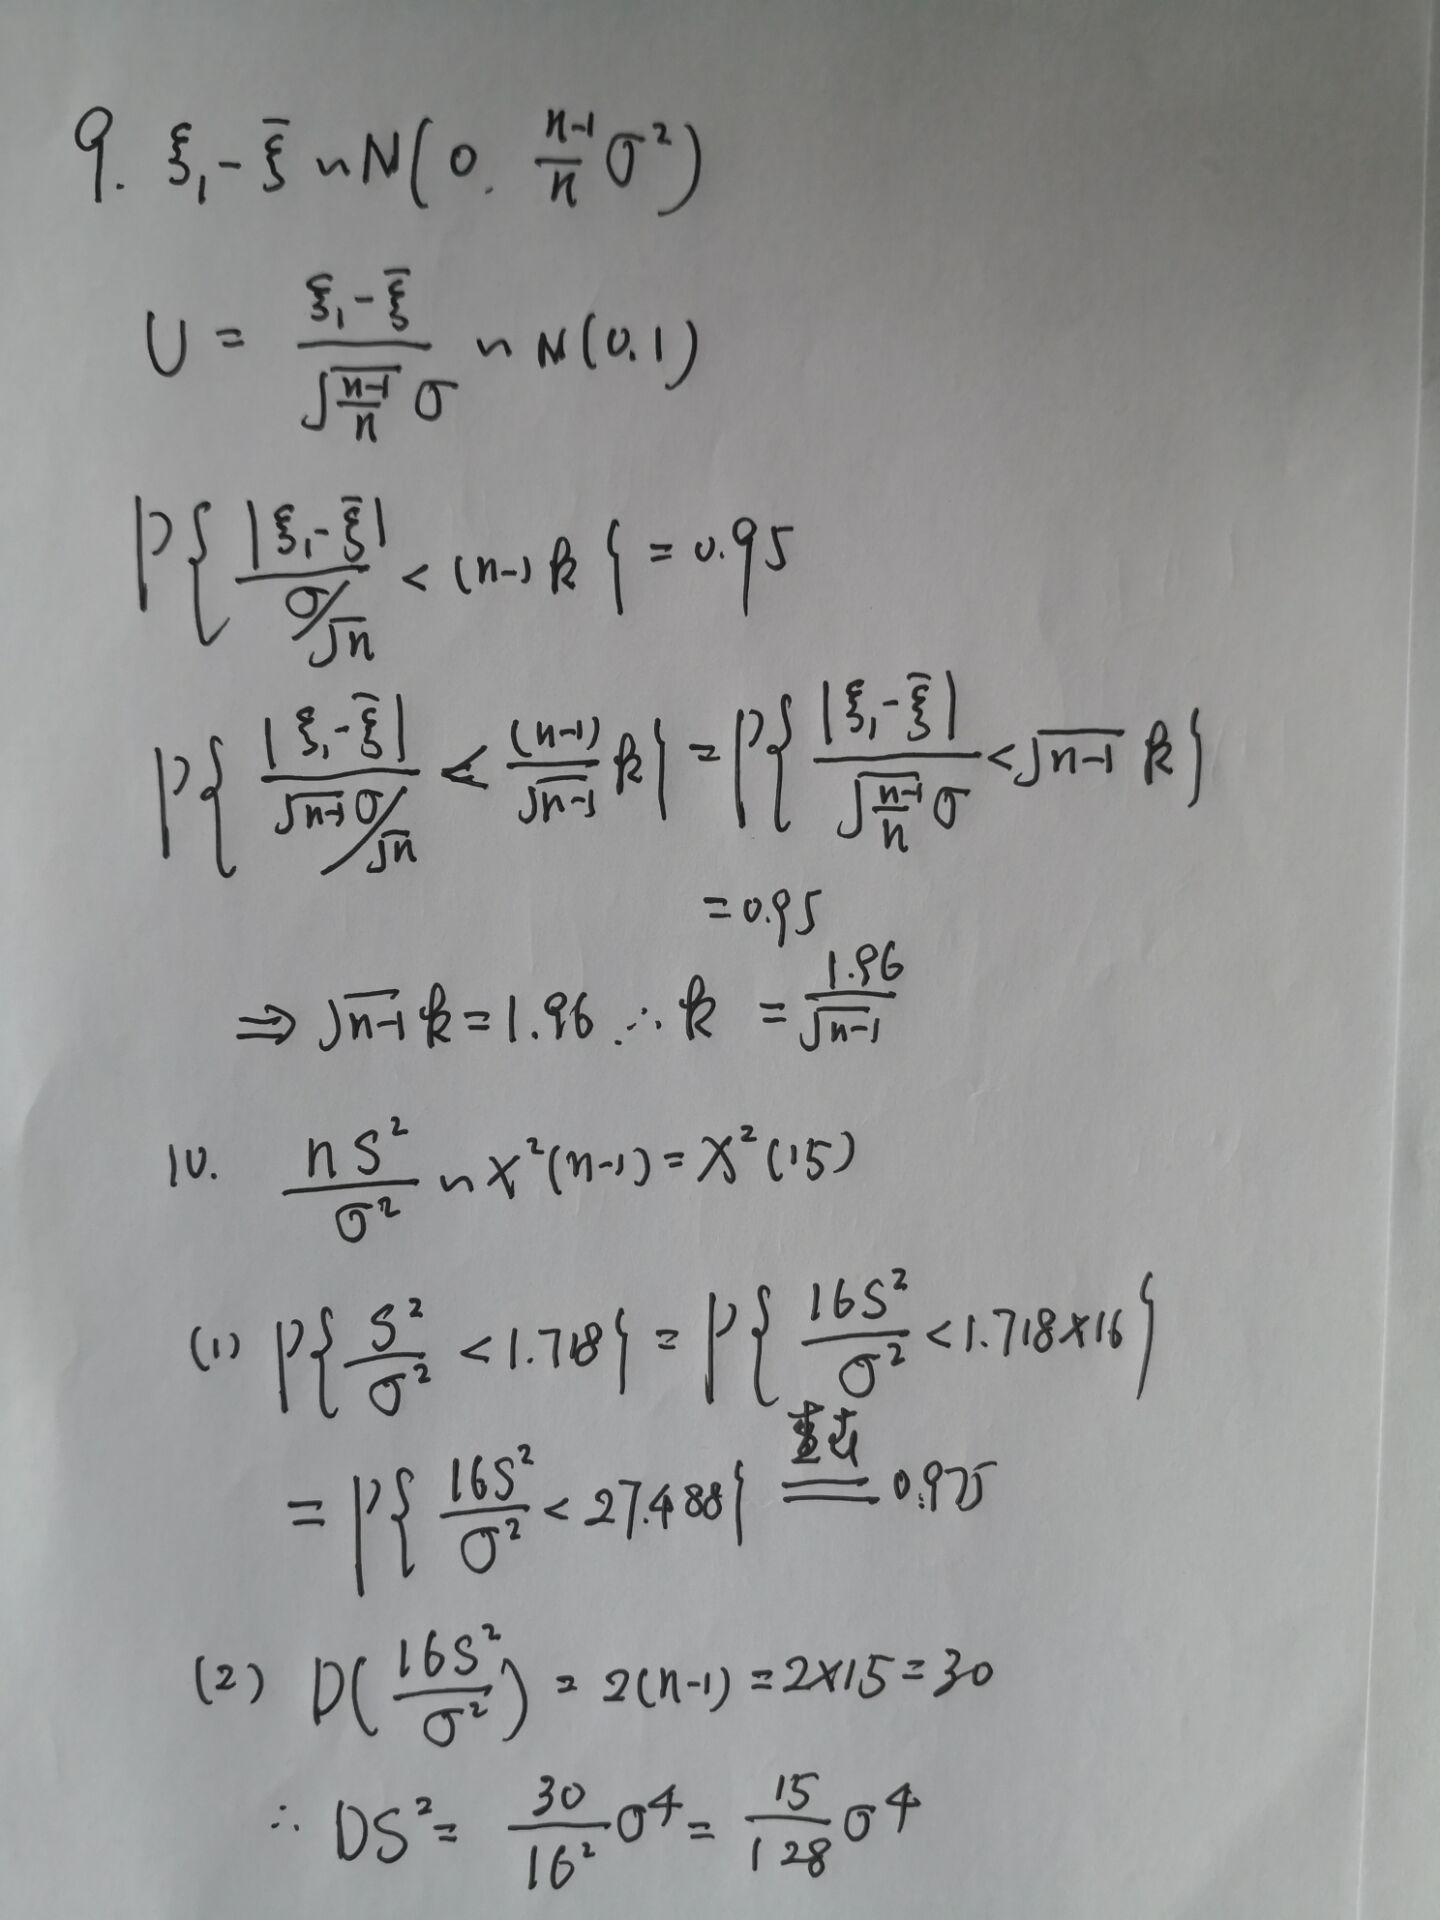 9. ξ₁-ξ̄ ~ N(0, (n-1)/n σ²)
U = (ξ₁-ξ̄)/(√((n-1)/n) σ) ~ N(0,1)
P{ |ξ₁-ξ̄|/(σ/√n) < (n-1)k } = 0.95
P{ |ξ₁-ξ̄|/(√(n-1) σ/√n) < (n-1)/√(n-1) k } = P{ |ξ₁-ξ̄|/(√((n-1)/n) σ) < √(n-1) k }
= 0.95
⇒ √(n-1) k = 1.96 ∴ k = 1.96/√(n-1)
10. nS²/σ² ~ χ²(n-1) = χ²(15)
(1) P{ S²/σ² < 1.718 } = P{ 16S²/σ² < 1.718×16 }
= P{ 16S²/σ² < 27.488 } 查表== 0.975
(2) D(16S²/σ²) = 2(n-1) = 2×15 = 30
∴ DS² = 30/16² σ⁴ = 15/128 σ⁴